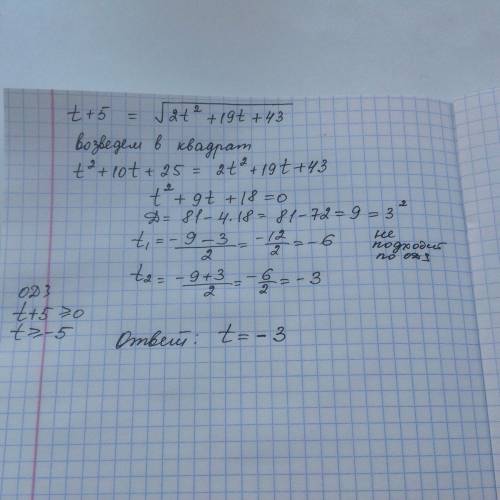 t+5 = √(2t²+19t+43)
возведем в квадрат
t²+10t+25 = 2t²+19t+43
t²+9t+18=0
D= 81-4.18= 81-72=9=3²
t₁= (-9-3)/2 = -12/2 = -6 не подходит по одз
t₂= (-9+3)/2 = -6/2 = -3
ОДЗ
t+5⩾0
t⩾-5
Ответ: t=-3